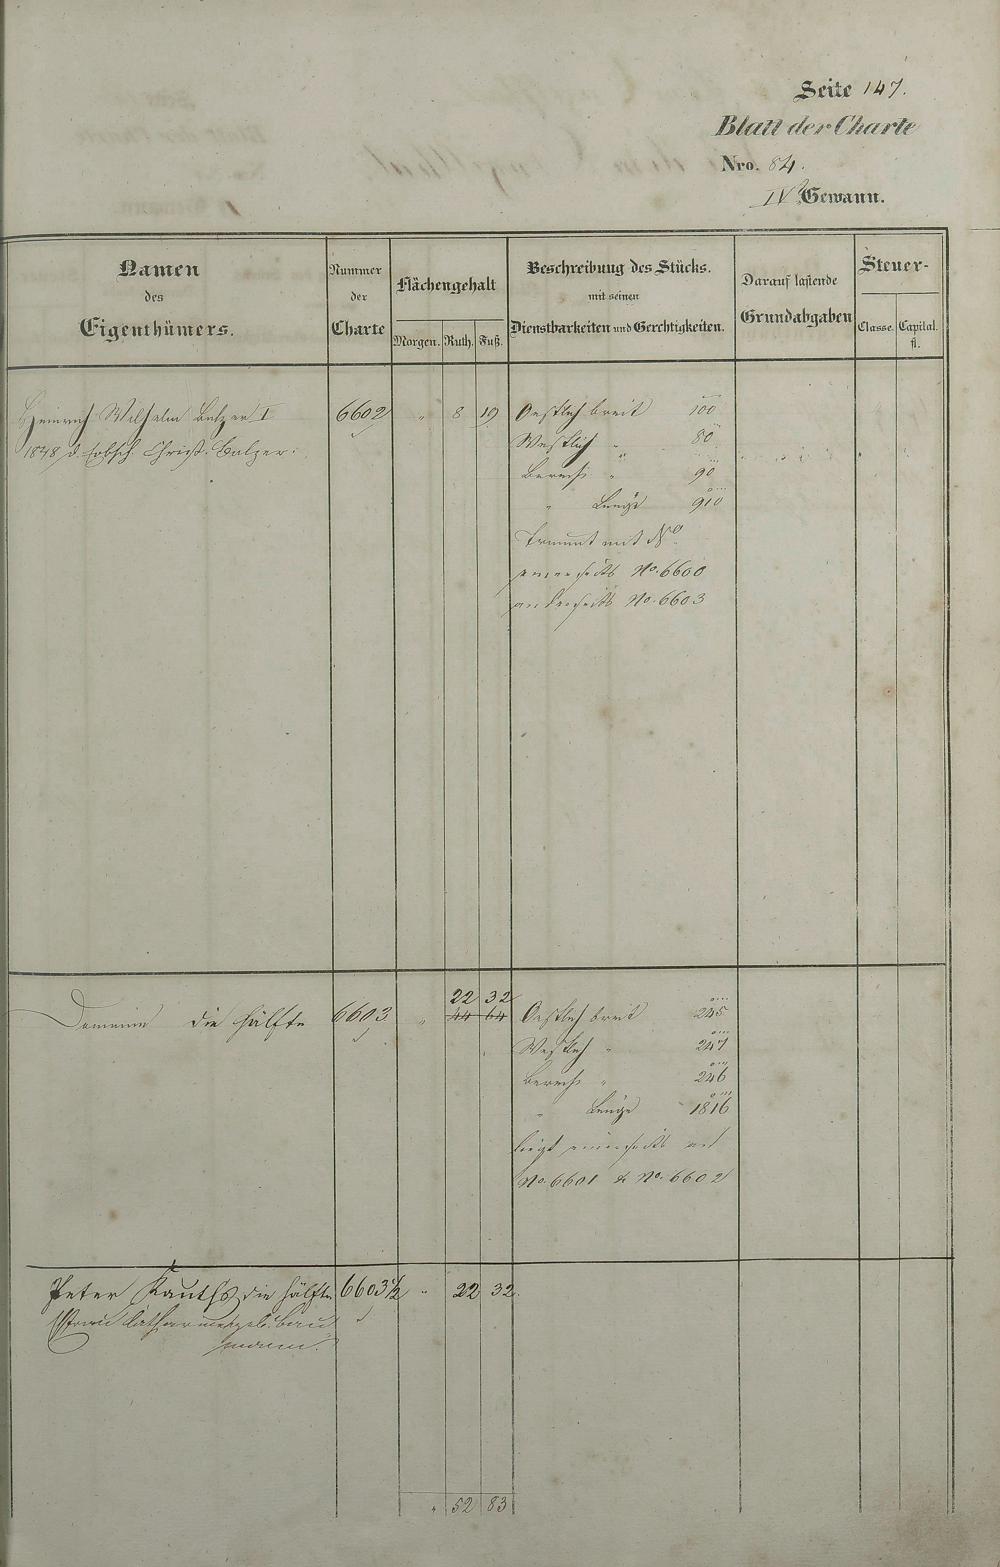 Seite 147.
Blatt der Charte
Nro. 84.
IVte Gewann.
Namen
des
Eigenthümers.
Nummer
der
Charte
Flächengehalt
Morgen. Ruth. Fuß.
Beschreibung des Stücks.
mit seinen
Dienstbarkeiten und Gerechtigkeiten.
Darauf lastende
Grundabgaben
Steuer-
Classe. Capital.
fl.
Heinrich Wilhelm Balzer I 6602 " 8 19 Oestlich breit 100
1848 d. Erbsch. Christ. Balzer. Westlich " 80
Berech. " 90
" Länge 910
No
einerseits No. 6600
anderseits No. 6603
22 32
Domaine die Hälfte 6603 " 44 64 Oestlich breit 245
Westlich " 247
Berech. " 246
" Länge 1816
liegt einerseits
No. 6601 & No. 6602
Peter Kauths die Hälfte 6603 1/2 " 22 32.
Frau Catharine geb. Bau
mann.
" 52 83